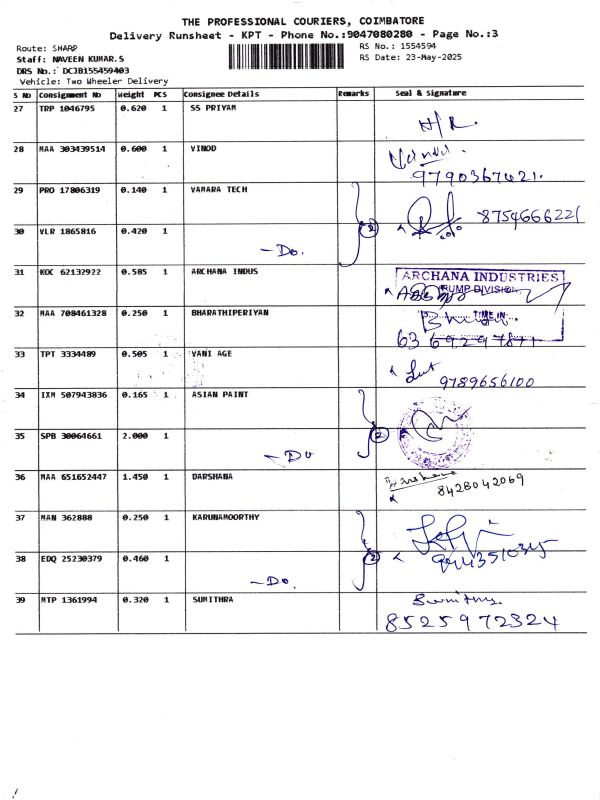 THE PROFESSIONAL COURIERS, COIMBATORE
Delivery Runsheet - KPT - Phone No.:9047080280 - Page No.:3
Route: SHARP
RS No.: 1554594
Staff: NAVEEN KUMAR.S
RS Date: 23-May-2025
DRS No.: DCJB155459403
Vehicle: Two Wheeler Delivery
S No Consignment No Weight PCS Consignee Details Remarks Seal & Signature
27 TRP 1046795 0.620 1 SS PRIYAM
N/R.
28 MAA 303439514 0.600 1 VINOD
9790367421.
29 PRO 17806319 0.140 1 YAMARA TECH
8754666221
30 VLR 1865816 0.420 1 2
- Do.
31 KOC 62132922 0.585 1 ARCHANA INDUS
ARCHANA INDUSTRIES
PUMP DIVISION
32 MAA 708461328 0.250 1 BHARATHIPERIYAN
TIME IN
6369297871
33 TPT 3334489 0.505 1 VANI AGE
9789656100
34 IXM 507943836 0.165 1 ASIAN PAINT
35 SPB 30064661 2.000 1 2
- Do
36 MAA 651652447 1.450 1 DARSHANA
Darshana
8428042069
37 MAN 362888 0.250 1 KARUNAMOORTHY
38 EDQ 25230379 0.460 1 2
- Do.
39 MTP 1361994 0.320 1 SUMITHRA
Sumithra.
8525972324